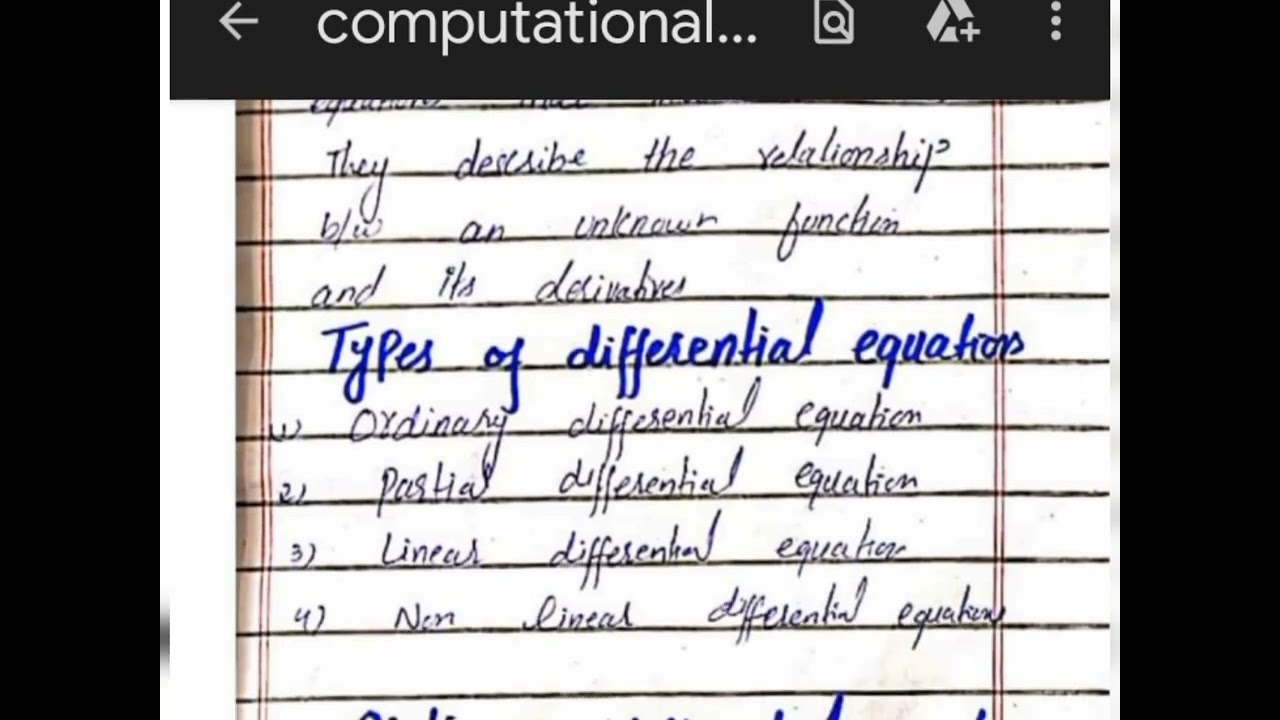 computational...
They describe the relationship
b/w an unknown function
and its derivatives
Types of differential equations
1) Ordinary differential equation
2) Partial differential equation
3) Linear differential equation
4) Non linear differential equations